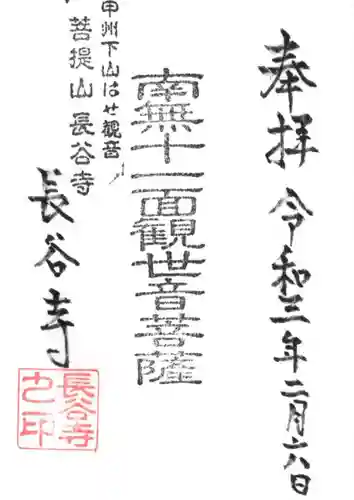 奉拝 令和三年二月六日
南無十一面観世音菩薩
甲州下山はせ観音
菩提山 長谷寺
長谷寺
長谷寺之印